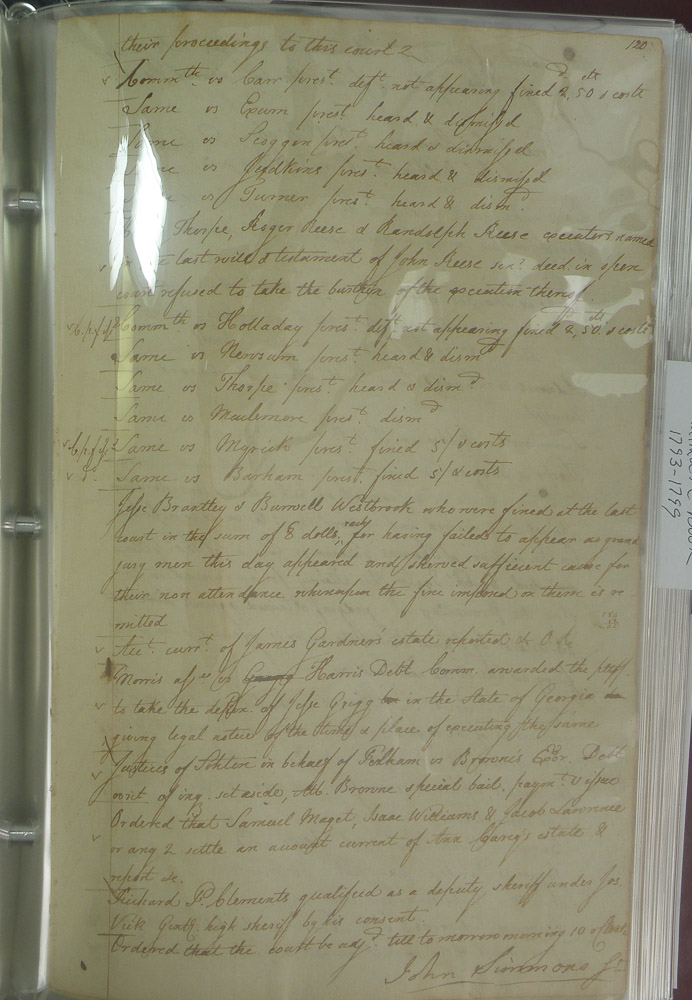 120
their proceedings to this court
Commth vs Carr prest deft not appearing fined 2,50 & costs
Same vs Exum prest heard & dismissed
Same vs Scoggon prest heard & dismissed
vs Judkins prest heard & dismissed
vs Turner prest heard & dismd
Thorpe, Roger Reese & Randolph Reese executors named
in the last will & testament of John Reese senr decd in open
court refused to take the burthen of the execution thereof
Commth vs Holladay prest deft not appearing fined 2,50 cts & costs
Same vs Newsum prest heard & dismd
Same vs Thorpe prest heard & dismd
Same vs prest dismd
Same vs Myrick prest fined 5/ & costs
Same vs Barham prest fined 5/ & costs
Jesse Brantley & Burwell Westbrook who were fined at the last
court in the sum of 8 dolls each for having failed to appear as grand
jury men this day appeared and shewed sufficient cause for
their non attendance whereupon the fine imposed on them is re
mitted
Acct currt of James Gardner's estate reported & O.R
Morris assee vs Harris Debt Comm. awarded the pltff
to take the depon of Jesse Grigg in the State of Georgia
giving legal notice of the time & place of executing the same
Justices of in behalf of Pelham vs Browne's Exor. Debt
writ of inq. set aside, Browne special bail, paymt & issue
Ordered that Samuel Maget, Isaac Williams & Jacob Lawrence
or any 2 settle an account current of Ann estate &
report &c.
Richard P. Clements qualified as a deputy sheriff under Jos.
Vick Gent. high sheriff by his consent.
Ordered that the court be adjd till tomorrow morning 10 oClock
John Simmons
1793-1799